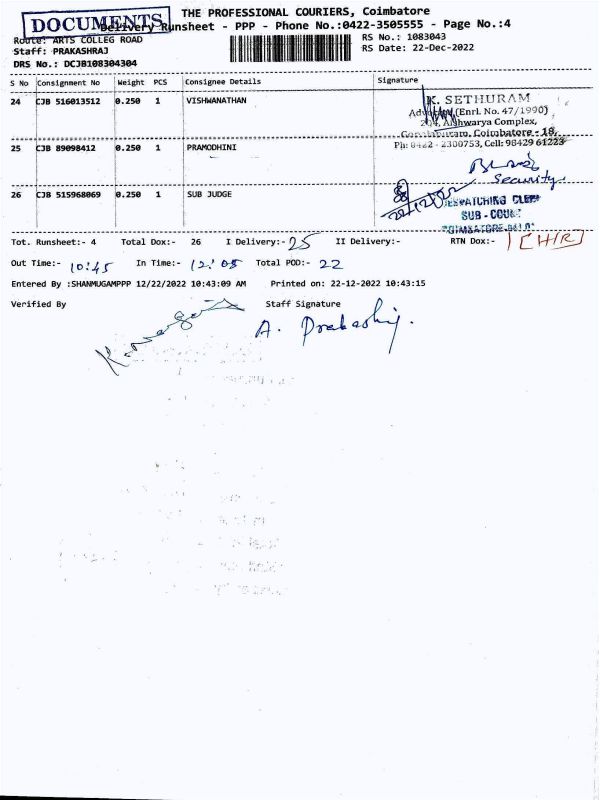 THE PROFESSIONAL COURIERS, Coimbatore
DOCUMENTS
Delivery Runsheet - PPP - Phone No.:0422-3505555 - Page No.:4
Route: ARTS COLLEG ROAD
RS No.: 1083043
Staff: PRAKASHRAJ
RS Date: 22-Dec-2022
DRS No.: DCJB108304304
S No Consignment No Weight PCS Consignee Details Signature
24 CJB 516013512 0.250 1 VISHWANATHAN
K. SETHURAM
Advocate (Enrl. No. 47/1990)
204, Aishwarya Complex,
Gopalapuram, Coimbatore - 18.
Ph: 0422 - 2300753, Cell: 98429 61223
25 CJB 89098412 0.250 1 PRAMODHINI
Security
26 CJB 515968069 0.250 1 SUB JUDGE
22/12/2022
DESPATCHING CLERK
SUB - COURT
Tot. Runsheet:- 4 Total Dox:- 26 I Delivery:- 25 II Delivery:- RTN Dox:- 1 [H/R]
Out Time:- 10:45 In Time:- 12:05 Total POD:- 22
Entered By :SHANMUGAMPPP 12/22/2022 10:43:09 AM Printed on: 22-12-2022 10:43:15
Verified By Staff Signature
A. Prakashraj.